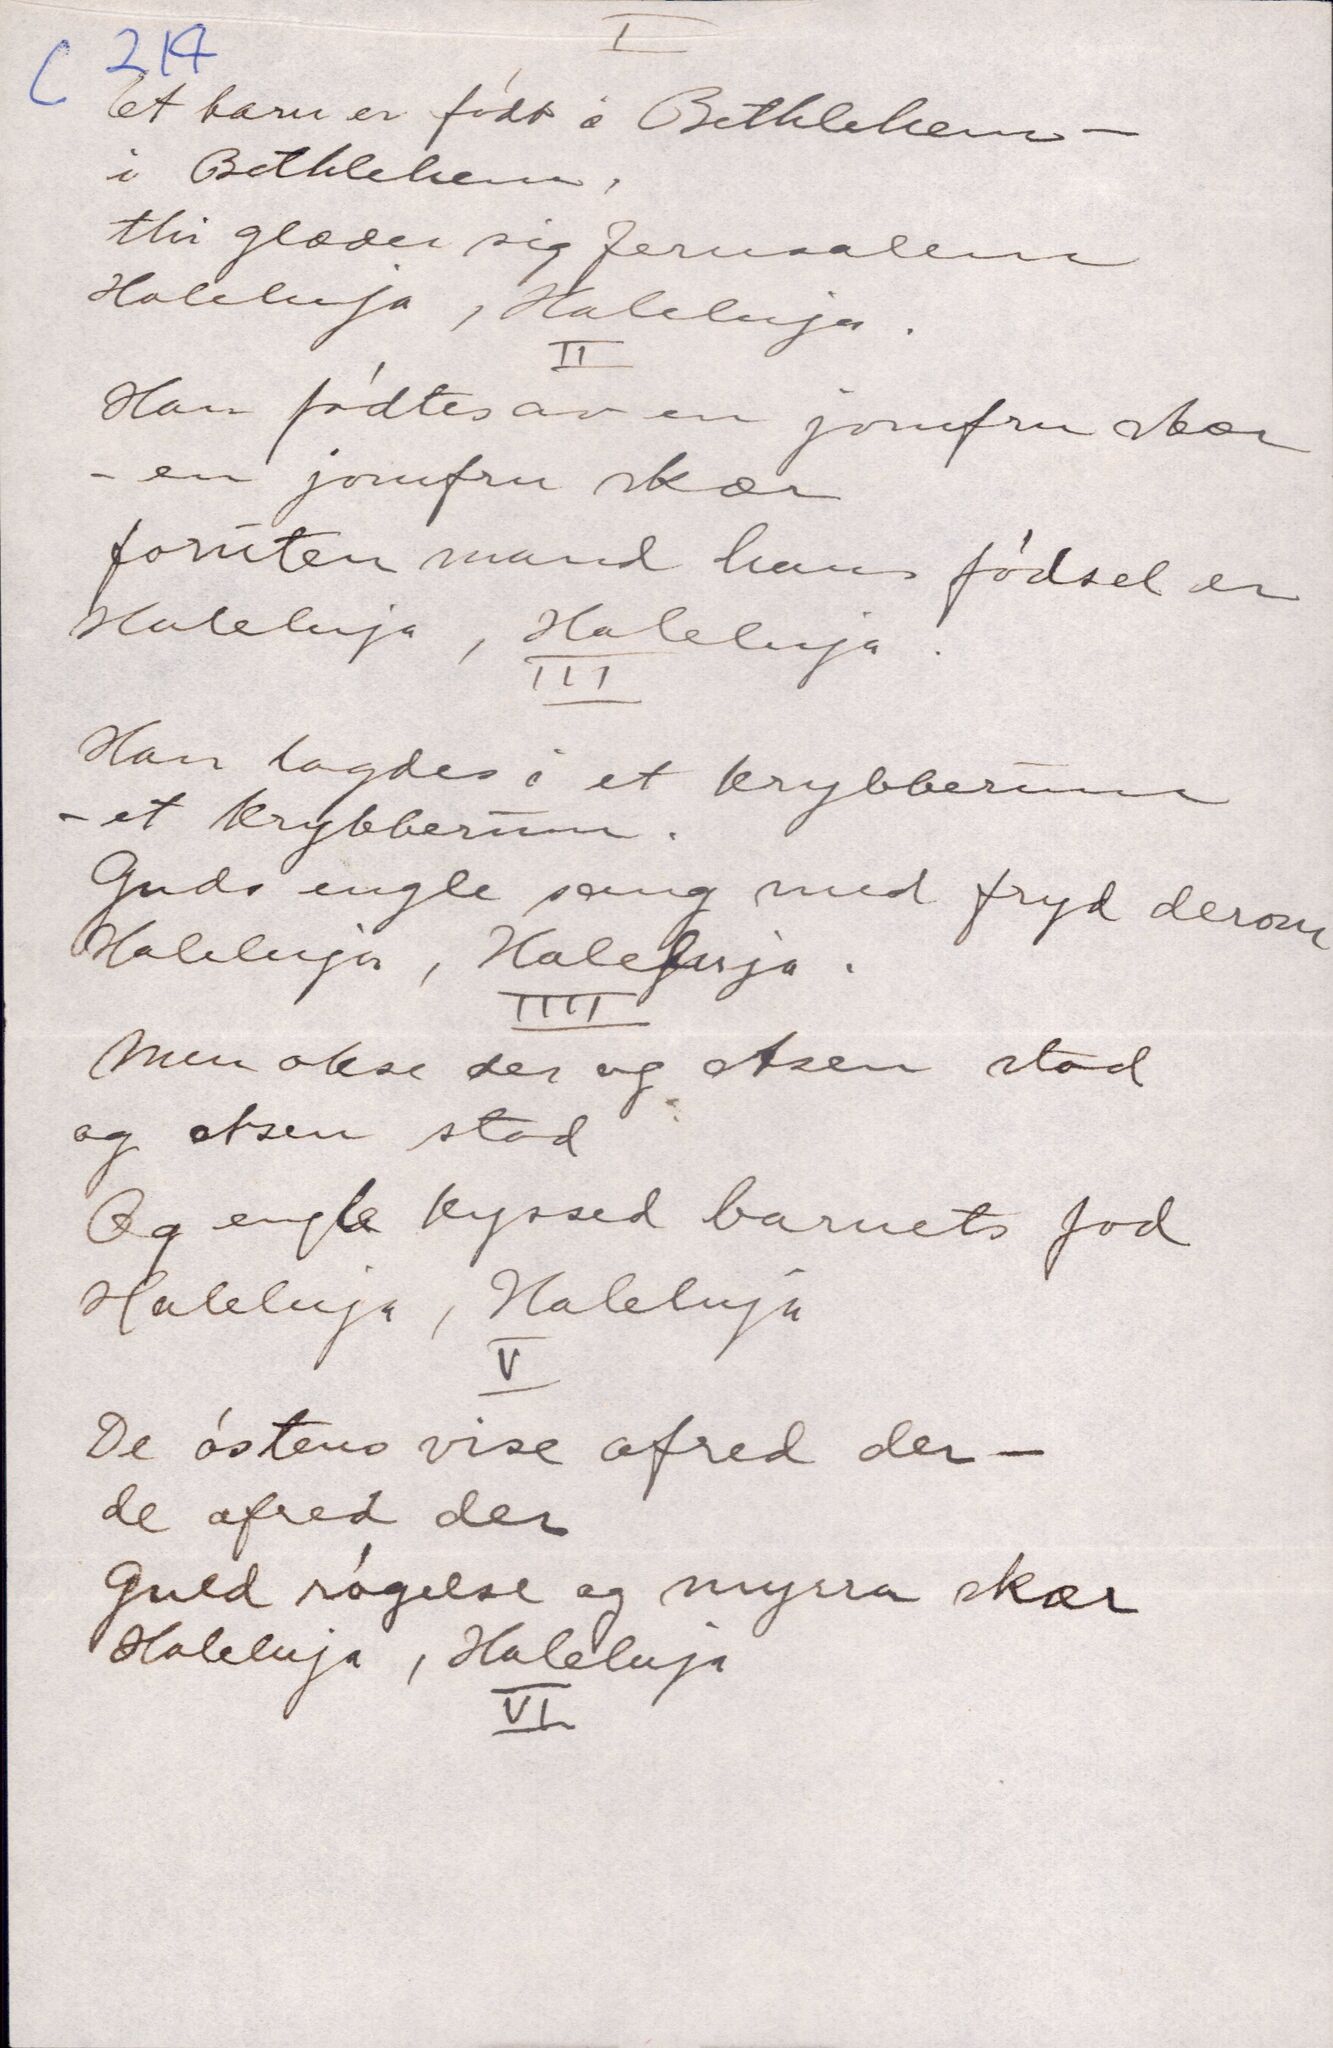 I
C 214
Et barn er født i Bethlehem –
i Bethlehem,
thi glæder sig Jerusalem
Haleluja, Haleluja.
II
Han fødtes av en jomfru skær
– en jomfru skær
foruten mand hans fødsel er
Haleluja, Haleluja.
III
Han lagdes i et krybberum
– et krybberum.
Guds engle sang med fryd derom
Haleluja, Haleluja.
IIII
Men okse der og asen stod
og asen stod
Og engle kyssed barnets fod
Haleluja, Haleluja
V
De østens vise ofred der –
de ofred der
Guld røgelse og myrra skær
Haleluja, Haleluja
VI